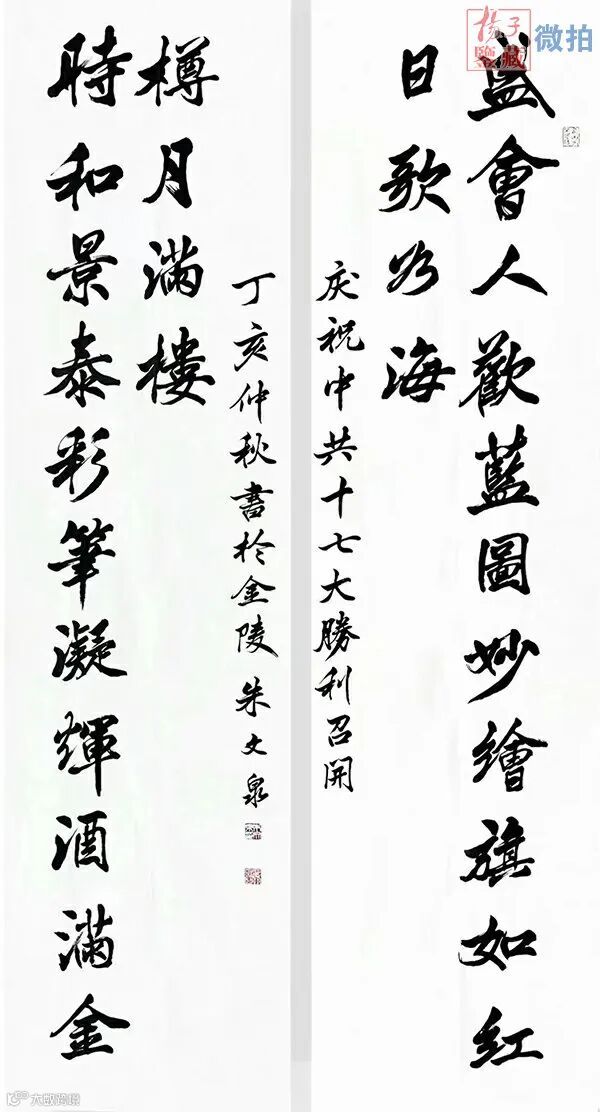 揚子
鑒藏
微拍
盛會人歡藍圖妙繪旗如紅
日歌為海
庆祝中共十七大勝利召開
時和景泰彩筆凝輝酒滿金
樽月滿樓
丁亥仲秋書於金陵 朱文泉